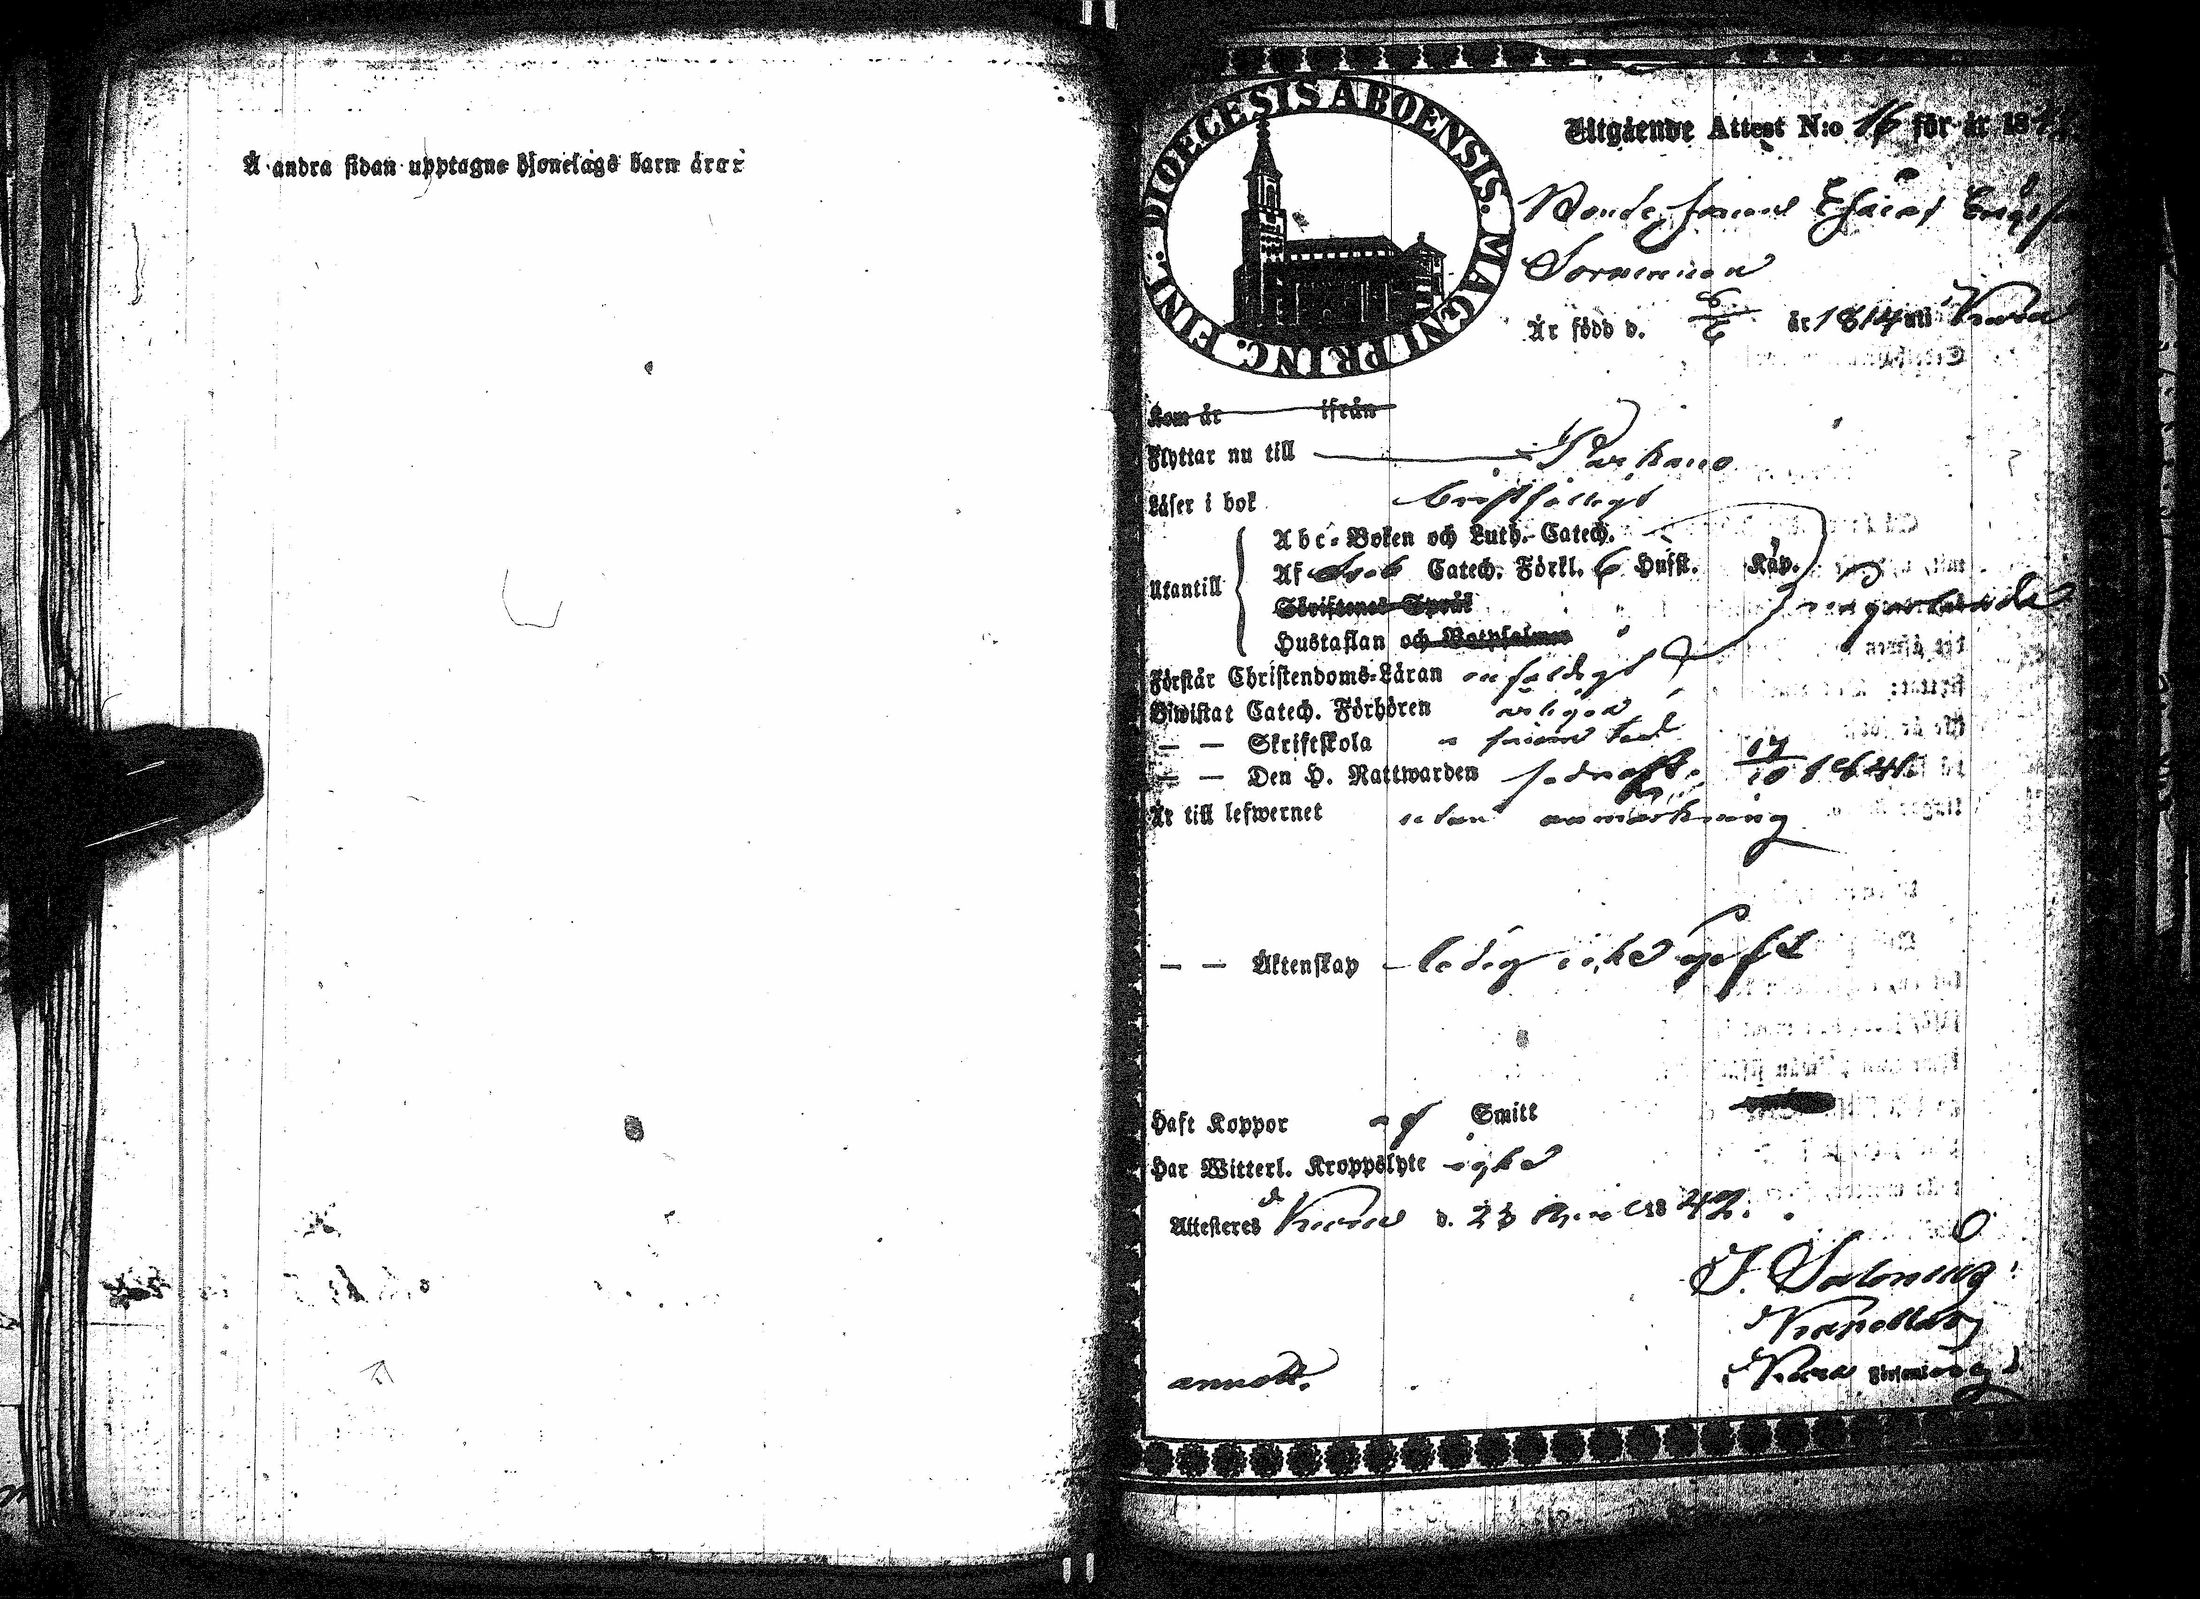 Å andra sidan upptagne Hjonelags barn äro:
DIOECESIS ABOENSIS. MAGNI PRINC. FINL.
Utgående Attest N:o 16 för år 18
Bondesonen Esaias
Är född d. 6/6 år 1814 uti
Kom år ifrån
Flyttar nu till Parkano
Läser i bok bristfälligt
Utantill
Abc-Boken och Luth. Catech.
Af Catech. Förkl. 6 Hufst. Kap.
Skriftenes Språk
Hustaflan och Botpsalmer
Förstår Christendoms-Läran enfaldigt
Biwistat Catech. Förhören årligen
— — Skriftskola
— — Den H. Nattwarden sednast 17/10 1841
Är till lefwernet utan anmärkning
— — Äktenskap ledig icke gift
Haft Koppor af Smitt
Har Witterl. Kroppslyte icke
Attesteras d. 23 1842.
J. Salonius
Kapellan
annott.